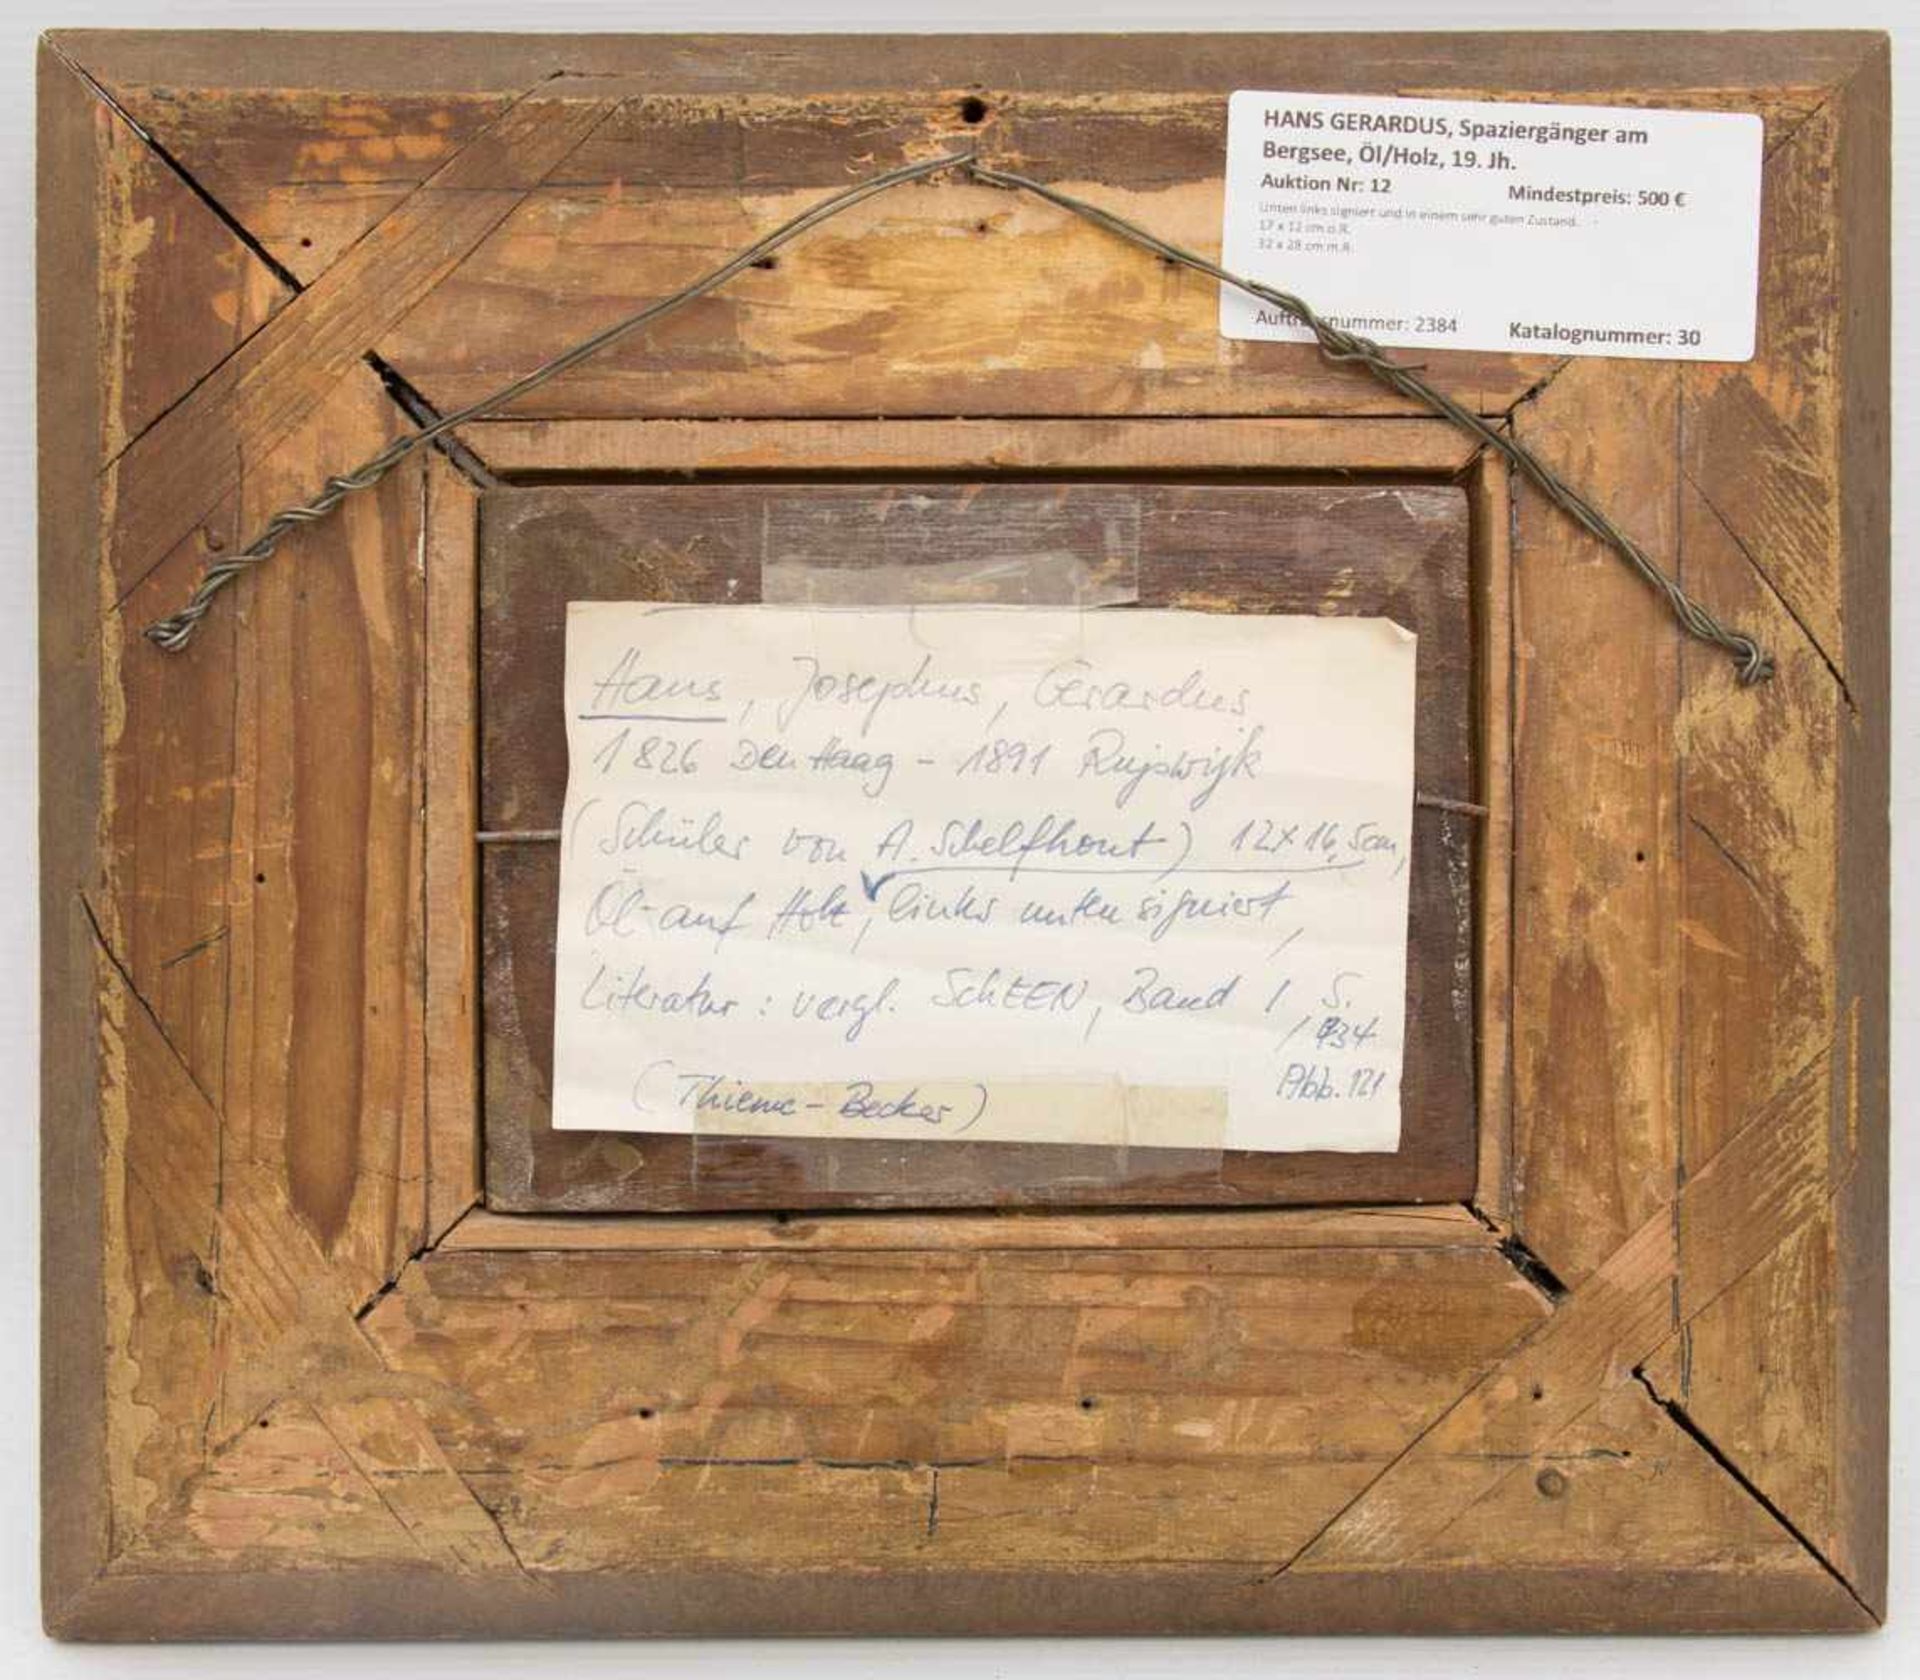 HANS GERARDUS, Spaziergänger am
Bergsee, Öl/Holz, 19. Jh.
Auktion Nr: 12 Mindestpreis: 500 €
Unten links signiert und in einem sehr guten Zustand.
17 x 12 cm o.R.
32 x 28 cm m.R.
nummer: 2384 Katalognummer: 30
Hans, Josephus, Gerardus
1826 Den Haag - 1891 Rijswijk
(Schüler von A. Schelfhout) 12x16,5cm,
Öl-auf Holz, links unten signiert,
Literatur: vergl. SchEEN, Band I, S.
434
Abb. 121
(Thieme-Becker)